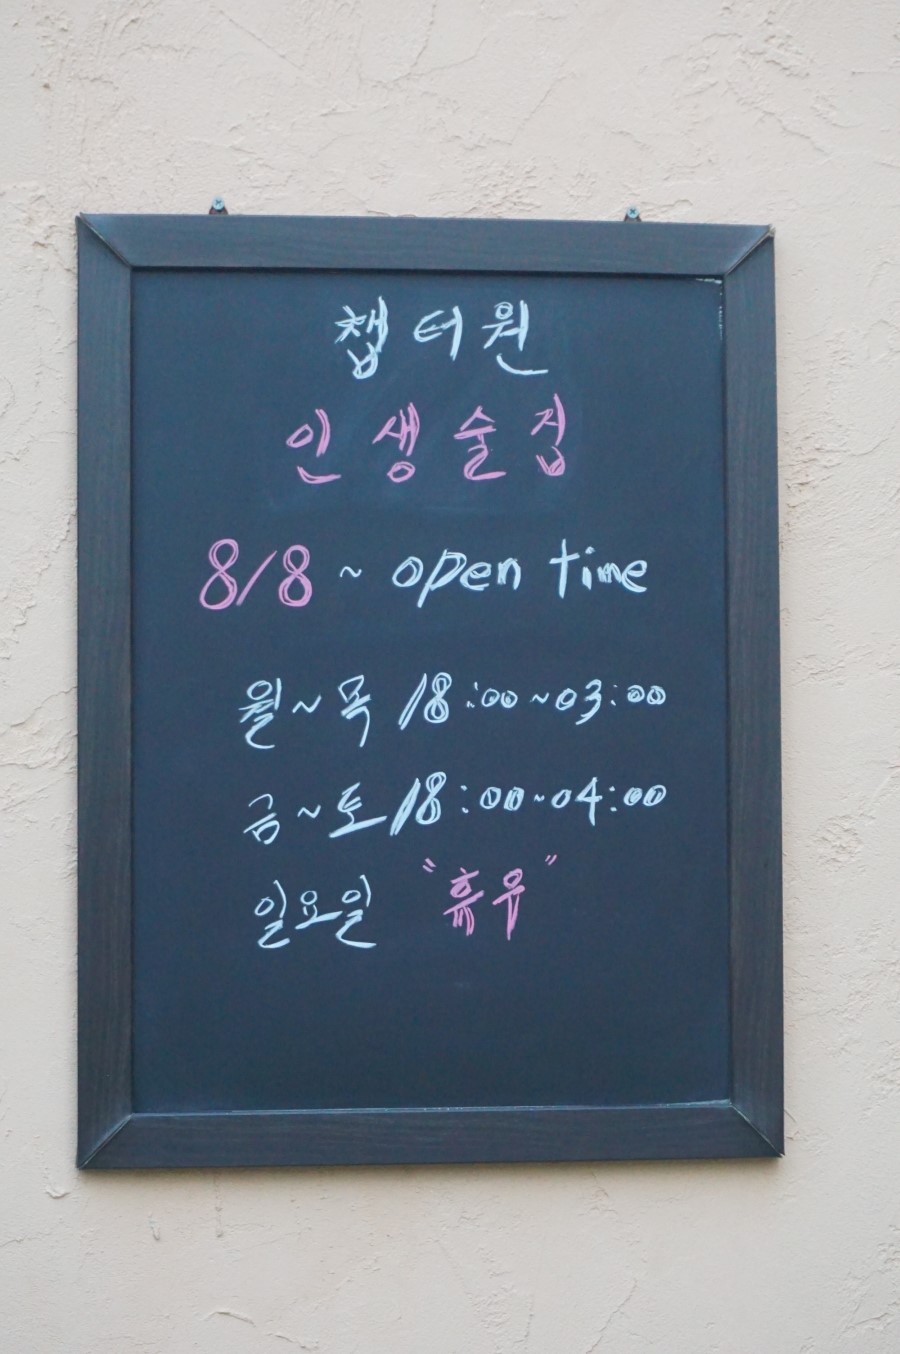 챕터원
인생술집
8/8 ~ open time
월~목 18:00~03:00
금~토 18:00~04:00
일요일 "휴무"